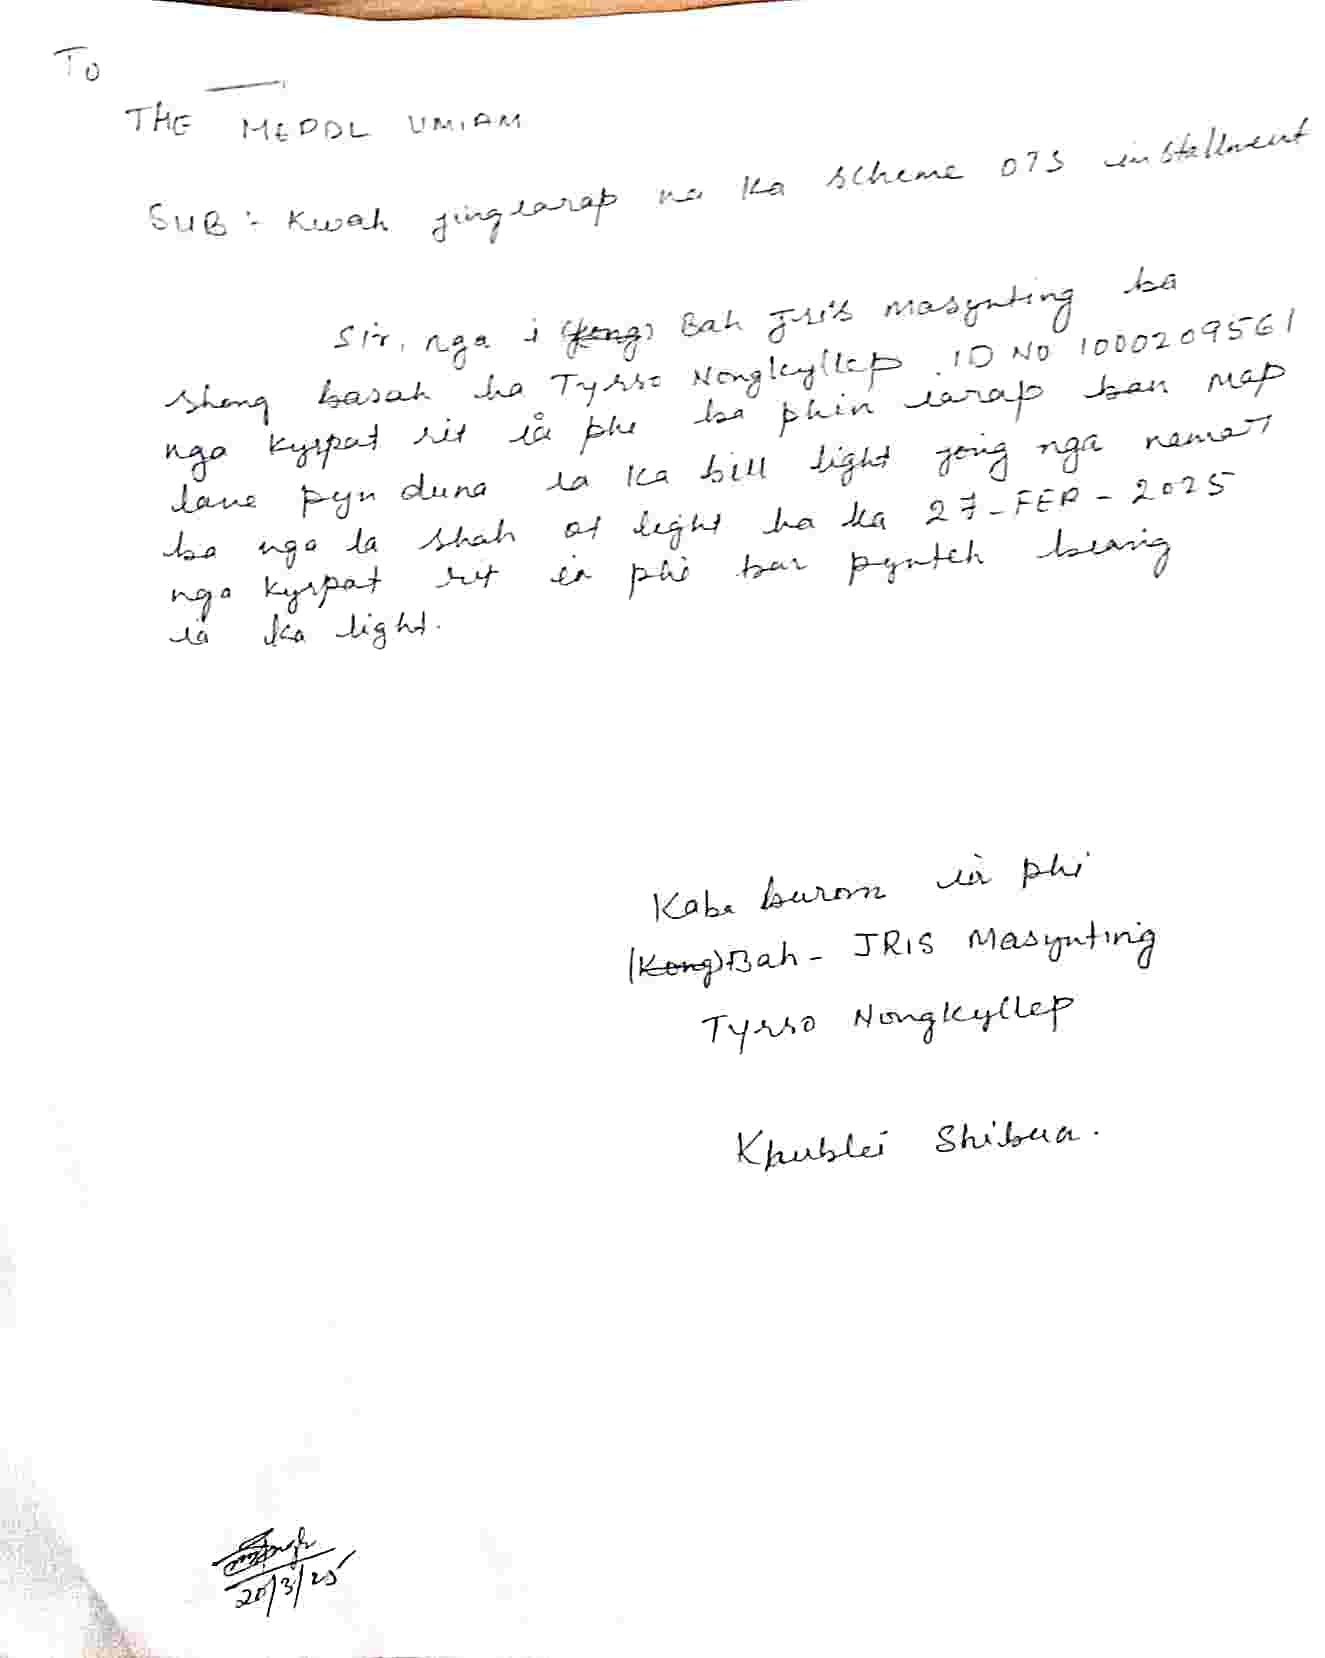 To
THE MEPDL UMIAM
SUB :- Kwah jingiarap na ka scheme OTS installment
Sir, nga i (Kong) Bah Jris Masynting ba
shong basah ha Tyrso Nongkyllep . ID NO 1000209561
nga kyrpat rit ïa phi ba phin ïarap ban map
lane pyn duna ia ka bill light jong nga namar
ba nga la shah ot light ha ka 27-FEB-2025
nga kyrpat rit ïa phi ban pynteh biang
ïa ka light.
Kaba burom ïa phi
(Kong) Bah - JRIS Masynting
Tyrso Nongkyllep
Khublei Shibun.
20/3/25